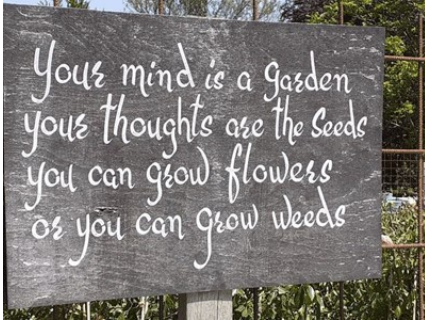 Your mind is a garden
your thoughts are the Seeds
you can grow flowers
or you can grow weeds